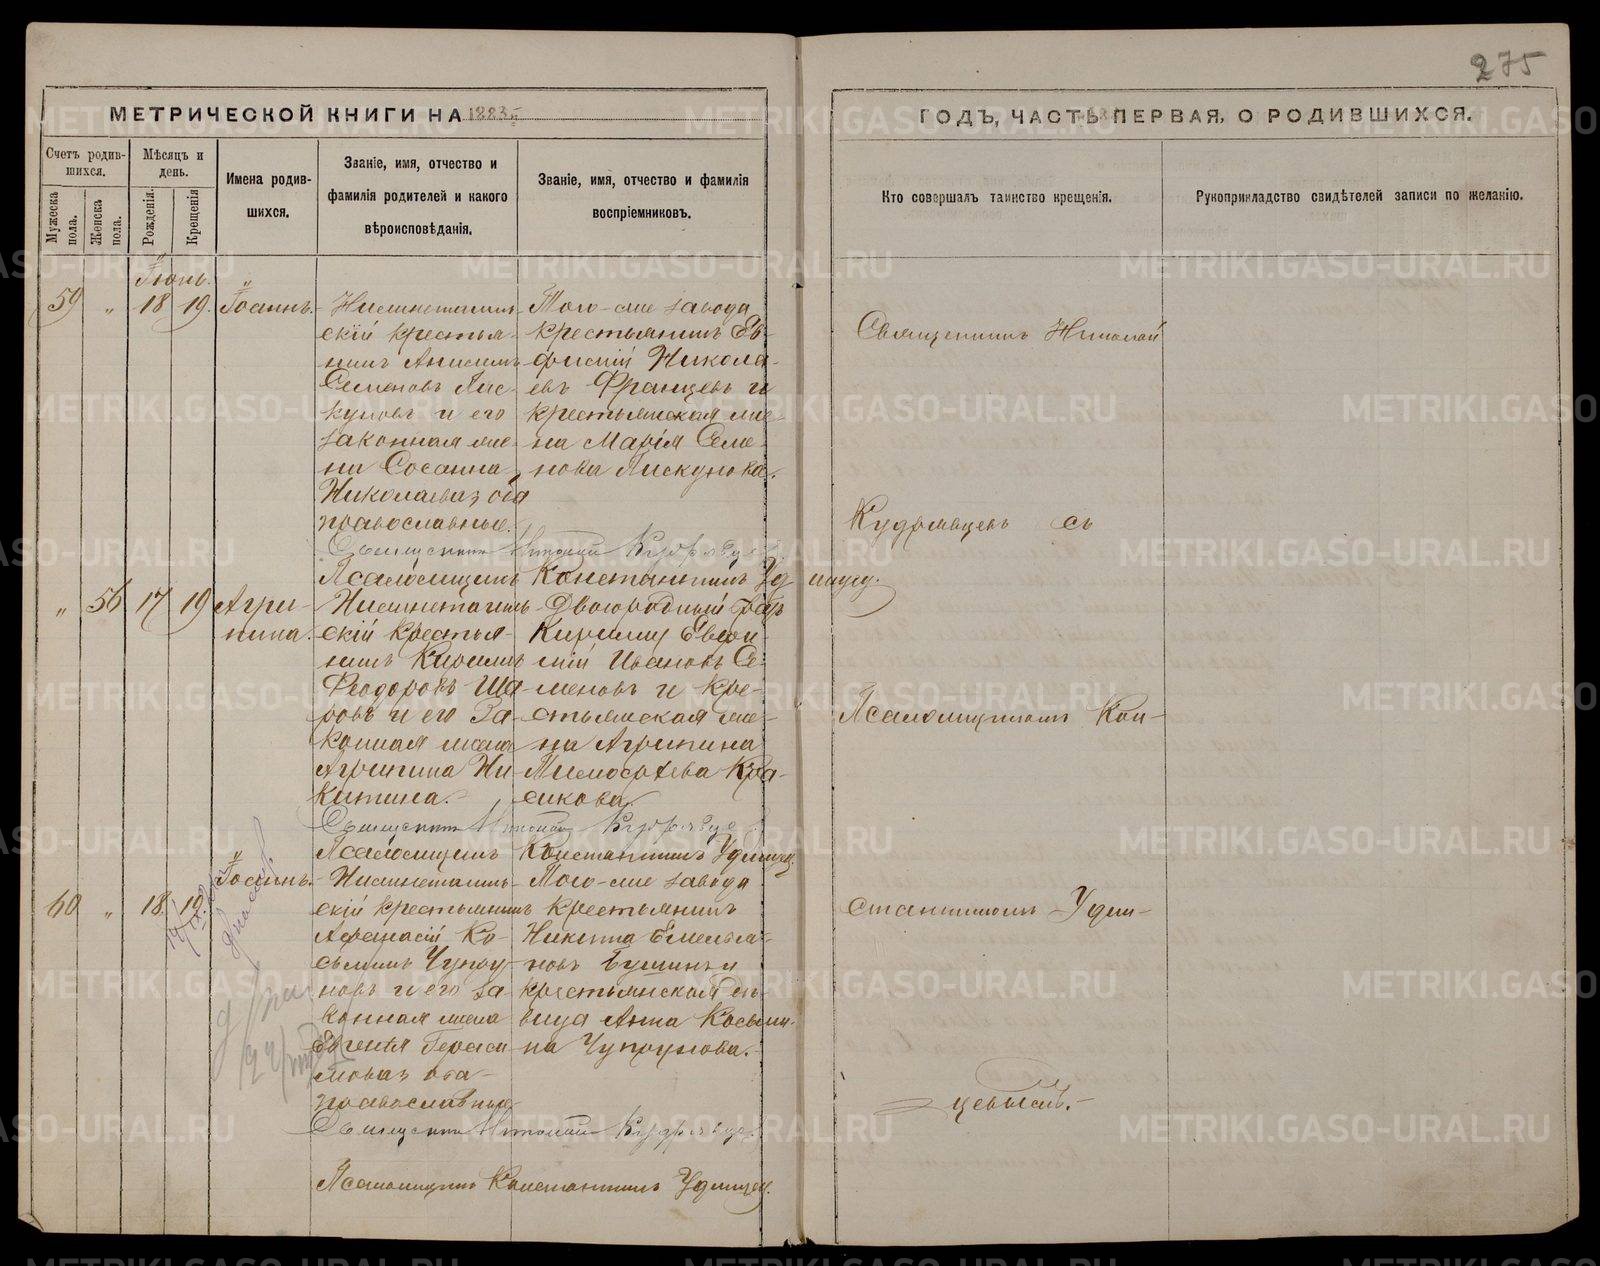 275
МЕТРИЧЕСКОЙ КНИГИ НА 1883 г.
ГОДЪ, ЧАСТЬ ПЕРВАЯ, О РОДИВШИХСЯ.
Счетъ родив-
шихся.
Мужеска пола.
Женска пола.
Мѣсяцъ и
день.
Рожденія.
Крещенія
Имена родив-
шихся.
Званіе, имя, отчество и
фамилія родителей и какого
вѣроисповѣданія.
Званіе, имя, отчество и фамилія
воспріемниковъ.
Кто совершалъ таинство крещенія.
Рукоприкладство свидѣтелей записи по желанію.
Іюнь.
59 " 18 19. Іоаннъ.
Нижнетагиль-
скій крестья-
нинъ Анисимъ
Семеновъ Пис-
куновъ и его
законная же-
на Сосанна
Николаева, оба
православные.
Того-же завода
крестьянинъ Ев-
фимій Никола-
евъ Францевъ и
крестьянская же-
на Марія Семе-
нова Пискунова.
Священникъ Николай Кудрявцевъ
Псаломщикъ Константинъ Удинцев.
" 56 17 19 Агри-
пина.
Нижнетагиль-
скій крестья-
нинъ Кириллъ
Ѳеодоровъ Ша-
ровъ и его За-
конная жена
Агрипина Ни-
китина.
Двоюродный братъ
Кириллу
Ивановъ Се-
меновъ и кре-
стьянская же-
на Агрипина
Тимофеева
Священникъ Николай Кудрявцев
Псаломщикъ Константинъ Удинцев.
60 " 18. 19. Іоаннъ.
Нижнетагиль-
скій крестьянинъ
Афанасій Ко-
сьминъ Чупру-
новъ и его за-
конная жена
Евгенія Гераси-
мова, оба
православные
Того-же завода
крестьянинъ
Никита Емелья-
новъ и
крестьянская дѣ-
вица Анна Косьми-
на Чупрунова.
Священникъ Николай Кудрявцев.
Псаломщикъ Константинъ Удинцев.
Священникъ Николай
Кудрявцевъ съ
Псаломщикомъ Кон-
стантиномъ Удин-
цевымъ.
METRIKI.GASO-URAL.RU